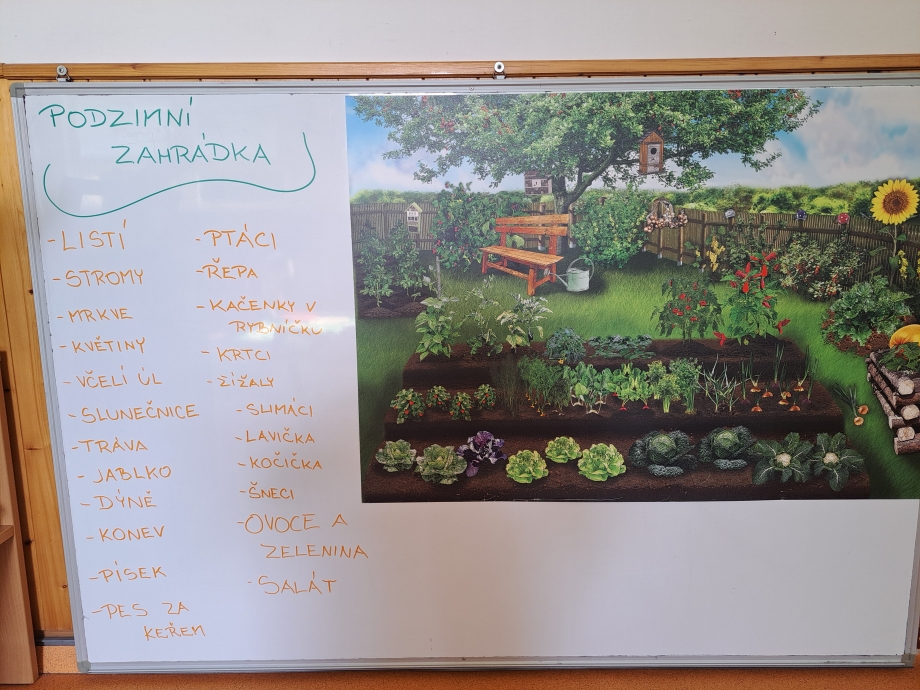 PODZIMNÍ
ZAHRÁDKA
-LISTÍ
-STROMY
-MRKVE
-KVĚTINY
-VČELÍ ÚL
-SLUNEČNICE
-TRÁVA
-JABLKO
-DÝNĚ
-KONEV
-PÍSEK
-PES ZA
KEŘEM
-PTÁCI
-ŘEPA
-KAČENKY V
RYBNÍČKU
-KRTCI
-ŽÍŽALY
-SLIMÁCI
-LAVIČKA
-KOČIČKA
-ŠNECI
-OVOCE A
ZELENINA
-SALÁT